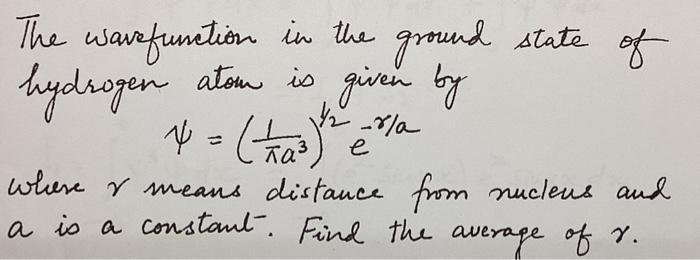 The wavefunction in the ground state of
hydrogen atom is given by
ψ = (1/πa³)^1/2 e^-r/a
where r means distance from nucleus and
a is a constant. Find the average of r.